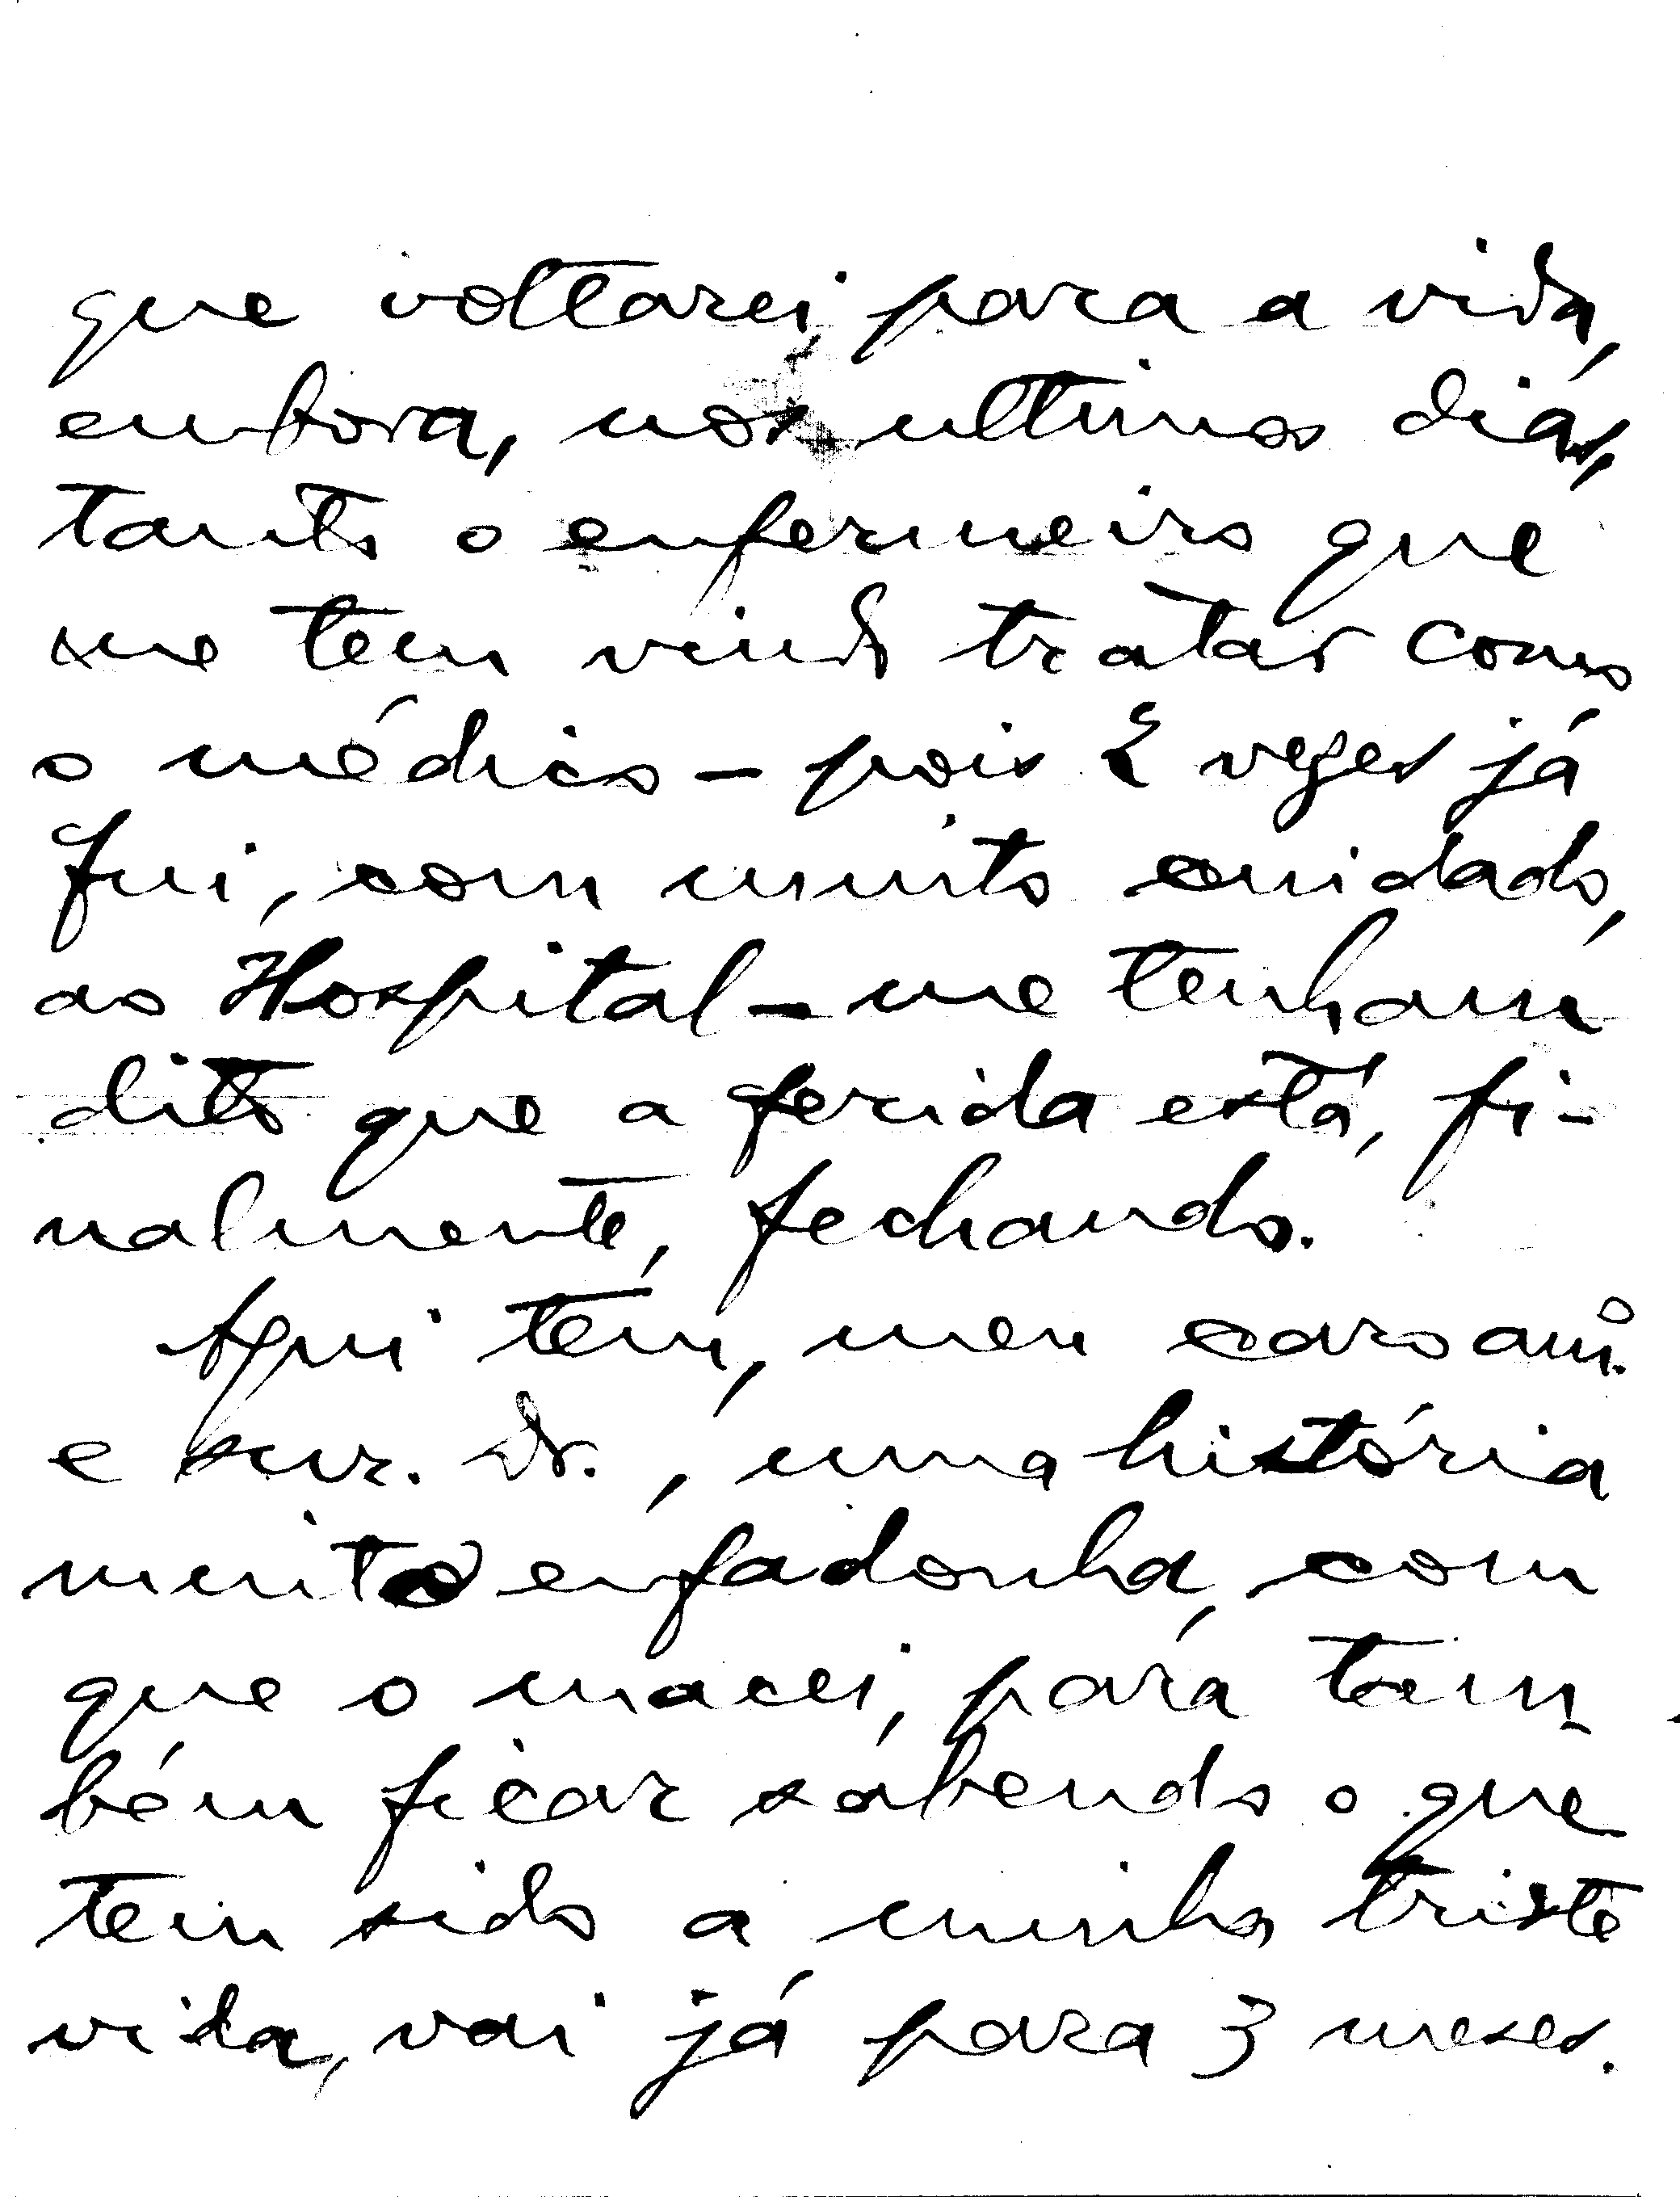 que voltarei para a vida,
embora, nos ultimos dias,
tanto o enfermeiro que
me tem vindo tratar como
o médico – pois 2 vezes já
fui, com muito cuidado,
ao Hospital – me tenham
dito que a ferida está, fi-
nalmente, fechando.
Aqui tem, meu caro amº.
e snr. Dr., uma história
muito enfadonha, com
que o macei, para tam-
bém ficar sabendo o que
tem sido a minha triste
vida, vai já para 3 meses.